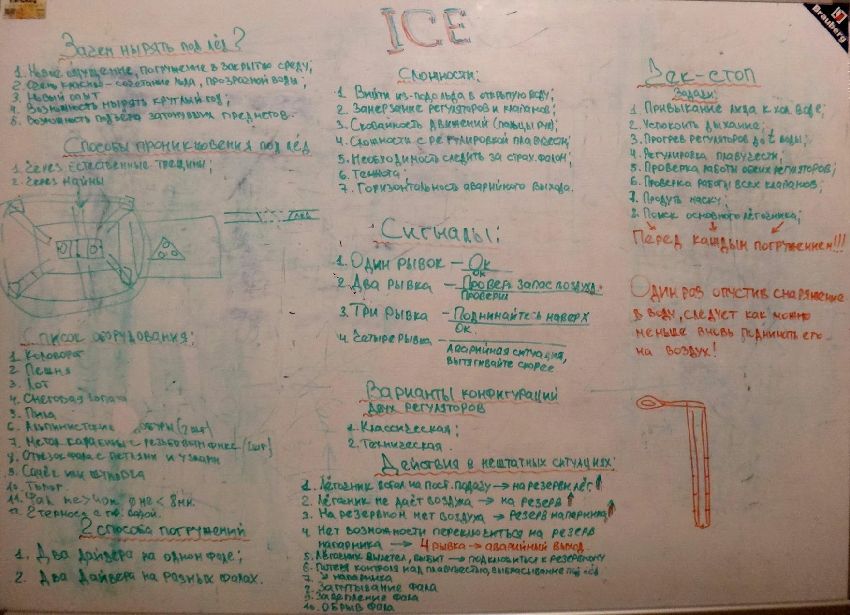 ICE
Brauberg
Зачем нырять под лёд?
1. Новое ощущение, погружение в закрытую среду;
2. Очень красиво - сочетание льда, прозрачной воды;
3. Новый опыт
4. Возможность нырять круглый год;
5. Возможность подъёма затонувших предметов.
Способы проникновения под лёд
1. Через естественные трещины;
2. Через майны
Список оборудования:
1. Коловорот
2. Пешня
3. Лот
4. Снеговая лопата
5. Пила
6. Альпинистские буры (2шт)
7. Метал. карабины с резьбовым фикс. (2шт)
8. Отрезок фала с петлями и узлами
9. Сачёк или шумовка
10. Топор.
11. Фал не < 8мм.
12. 2 термоса с гор. водой.
2 способа погружений
1. Два дайвера на одном фале;
2. Два дайвера на разных фалах.
Сложности:
1 Выйти из-подо льда в открытую воду;
2. Замерзание регуляторов и клапанов;
3. Скованность движений (пальцы рук);
4. Сложность с регулировкой плавучести;
5. Необходимость следить за страх. фалом;
6. Темнота;
7. Горизонтальность аварийного выхода.
Сигналы:
1. Один рывок - Ок
Ок
2. Два рывка - Проверь запас воздуха.
Проверил
3. Три рывка - Поднимайтесь наверх
Ок.
4. Четыре рывка -
Аварийная ситуация,
вытягивайте скорее
Варианты конфигураций
двух регуляторов
1. Классическая;
2. Техническая.
Действия в нештатных ситуациях:
1. Лёгочник встал на пост. подачу → на резерв лёг. ↑
2. Лёгочник не даёт воздуха → на резерв ↑
3. На резерве нет воздуха → резерв напарника ↑
4 Нет возможности переключиться на резерв
напарника → 4 рывка → аварийный выход.
5. Лёгочник вылетел, выбит → подключиться к резервному
6. Потеря контроля над плавучестью, выбрасывание под лёд
7. напарника
8. Запутывание фала
9. Зацепление фала
10. Обрыв фала
Чек-стоп
Задачи:
1. Привыкание лица к хол. воде;
2. Успокоить дыхание;
3. Прогрев регуляторов до t воды;
4. Регулировка плавучести;
5. Проверка работы обоих регуляторов;
6. Проверка работы всех клапанов;
7. Продуть маску;
8. Поиск основного лёгочника;
Перед каждым погружением!!!
Один раз опустив снаряжение
в воду, следует как можно
меньше вновь поднимать его
на воздух!